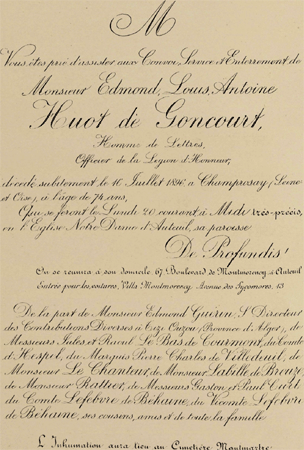 M
Vous êtes prié d'assister aux Convoi, Service et Enterrement de
Monsieur Edmond, Louis, Antoine
Huot de Goncourt,
Homme de Lettres,
Officier de la Légion d'Honneur,
décédé subitement le 16 Juillet 1896, à Champrosay, (Seine
et Oise), à l'âge de 74 ans,
Qui se feront le Lundi 20 courant, à Midi très-précis,
en l'Eglise Notre-Dame d'Auteuil, sa paroisse
De Profundis!
On se réunira à son domicile 67, Boulevard de Montmorency, à Auteuil
Entrée pour les voitures, Villa Montmorency, Avenue des Sycomores, 13
De la part de Monsieur Edmond Guérin, S. Directeur
des Contributions Diverses à Tizi Ouzou (Province d'Alger), de
Messieurs Jules et Raoul Le Bas de Courmont, du Comte
d'Hespel, du Marquis Pierre Charles de Villedeuil, de
Monsieur Le Chanteur, de Monsieur Labille de Breuze,
de Monsieur Rattier, de Messieurs Gaston et Paul
du Comte Lefebvre de Béhaine, du Vicomte Lefebvre
de Béhaine, ses cousins, amis et de toute la famille.
L'Inhumation aura lieu au Cimetière Montmartre.